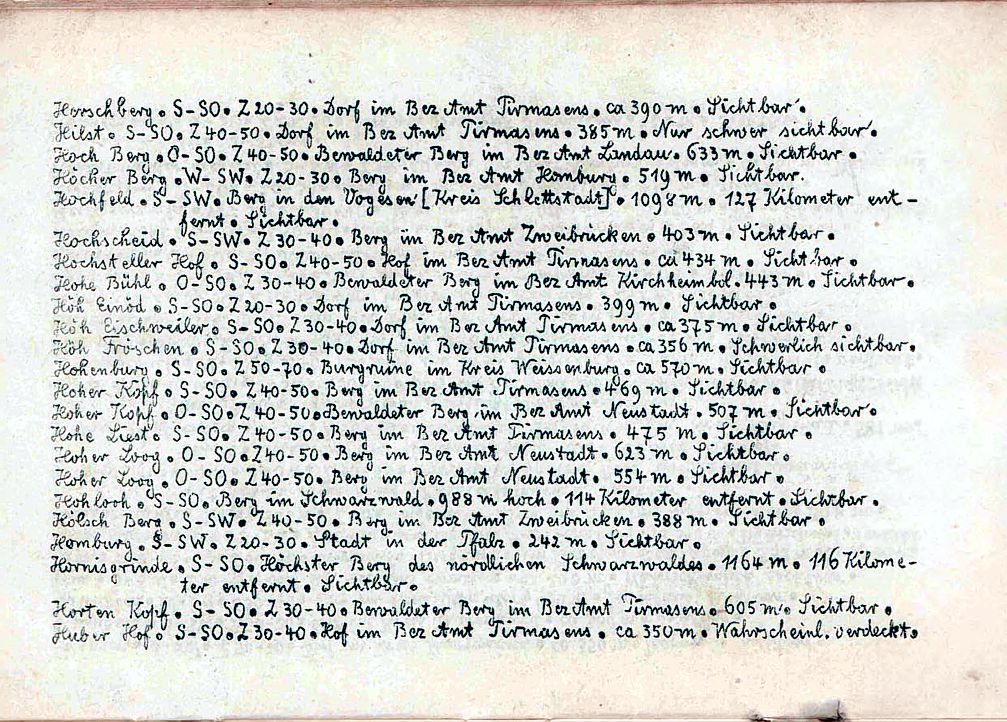 Horschberg • S-SO • Z 20-30 • Dorf im Bez Amt Pirmasens • ca 390 m • Sichtbar •
Hilst • S-SO • Z 40-50 • Dorf im Bez Amt Pirmasens • 385 m • Nur schwer sichtbar •
Hoch Berg • O-SO • Z 40-50 • Bewaldeter Berg im Bez Amt Landau • 633 m • Sichtbar •
Höcher Berg • W-SW • Z 20-30 • Berg im Bez Amt Homburg • 519 m • Sichtbar.
Hochfeld • S-SW • Berg in den Vogesen [Kreis Schlettstadt] • 1098 m • 127 Kilometer ent-
fernt • Sichtbar •
Hochscheid • S-SW • Z 30-40 • Berg im Bez Amt Zweibrücken • 403 m • Sichtbar •
Höchsteller Hof • S-SO • Z 40-50 • Hof im Bez Amt Pirmasens • ca 434 m • Sichtbar •
Hohe Bühl • O-SO • Z 30-40 • Bewaldeter Berg im Bez Amt Kirchheimbol. 443 m • Sichtbar •
Höh Einöd • S-SO • Z 20-30 • Dorf im Bez Amt Pirmasens • 399 m • Sichtbar •
Höh Eischweiler • S-SO • Z 30-40 • Dorf im Bez Amt Pirmasens • ca 375 m • Sichtbar •
Höh Fröschen • S-SO • Z 30-40 • Dorf im Bez Amt Pirmasens • ca 356 m • Schwerlich sichtbar.
Hohenburg • S-SO • Z 50-70 • Burgruine im Kreis Weissenburg • ca 570 m • Sichtbar •
Hoher Kopf • S-SO • Z 40-50 • Berg im Bez Amt Pirmasens • 469 m • Sichtbar •
Hoher Kopf • O-SO • Z 40-50 • Bewaldeter Berg im Bez Amt Neustadt • 507 m • Sichtbar •
Hohe Liest • S-SO • Z 40-50 • Berg im Bez Amt Pirmasens • 475 m • Sichtbar •
Hoher Loog • O-SO • Z 40-50 • Berg im Bez Amt Neustadt • 623 m • Sichtbar •
Hoher Loog • O-SO • Z 40-50 • Berg im Bez Amt Neustadt • 554 m • Sichtbar •
Hohloch • S-SO • Berg im Schwarzwald • 988 m hoch • 114 Kilometer entfernt • Sichtbar •
Hölsch Berg • S-SW • Z 40-50 • Berg im Bez Amt Zweibrücken • 388 m • Sichtbar •
Homburg • S-SW • Z 20-30 • Stadt in der Pfalz • 242 m • Sichtbar •
Hornisgrinde • S-SO • Höchster Berg des nördlichen Schwarzwaldes • 1164 m • 116 Kilome-
ter entfernt • Sichtbar •
Horten Kopf • S-SO • Z 30-40 • Bewaldeter Berg im Bez Amt Pirmasens • 605 m • Sichtbar •
Huber Hof • S-SO • Z 30-40 • Hof im Bez Amt Pirmasens • ca 350 m • Wahrscheinl. verdeckt •